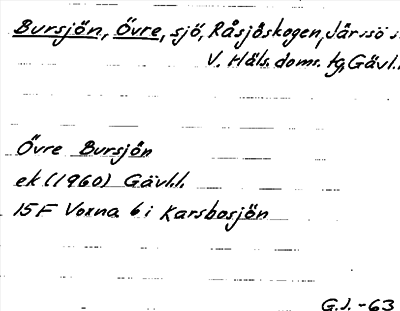 Bursjön, Övre, sjö, Råsjöskogen, Järvsö s
V. Häls. doms. tg, Gävl.
Övre Bursjön
ek (1960) Gävl.l.
15F Voxna 6 i Karsbosjön
G.J. -63